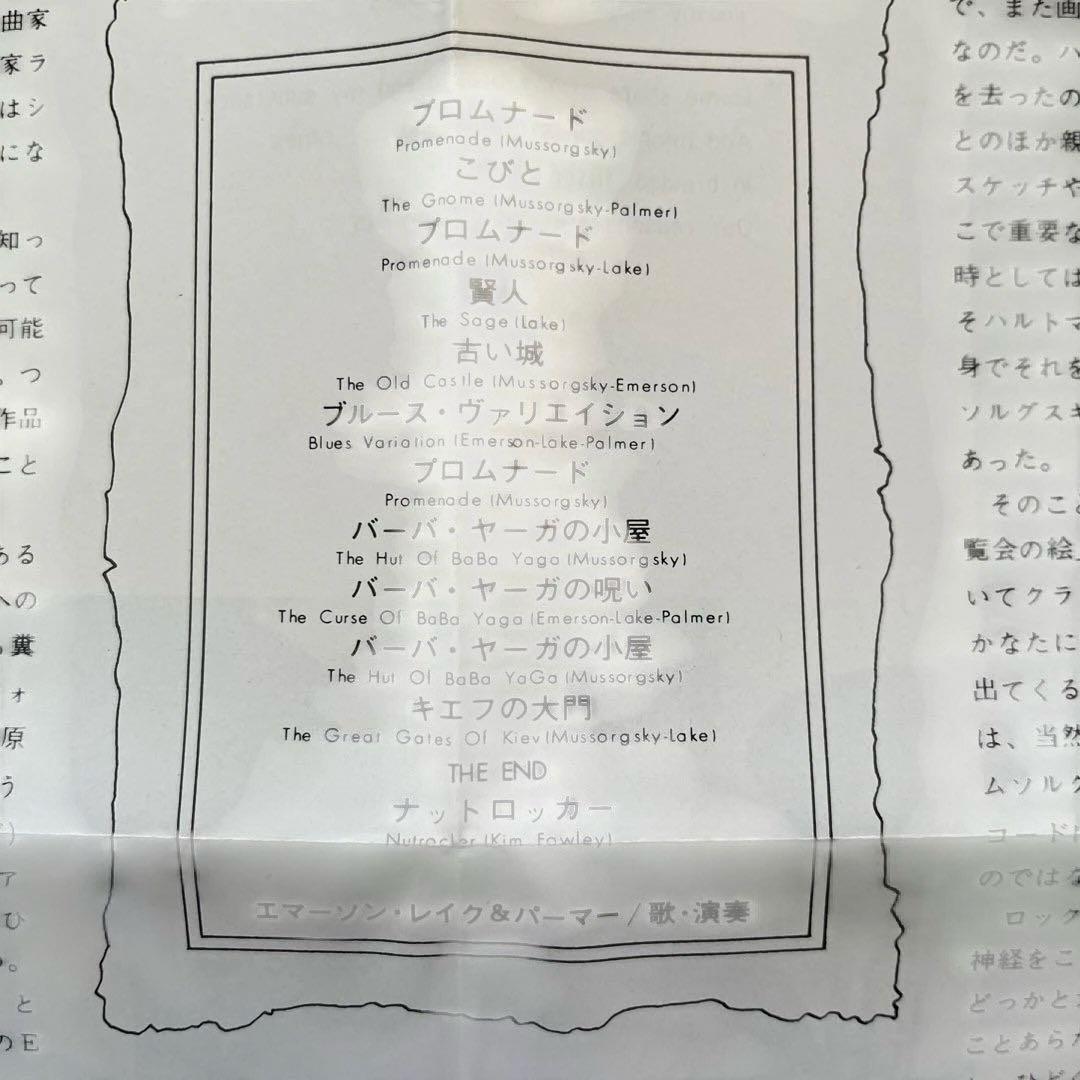 曲家
家ラ
はシ
にな
知っ
って
可能
。つ
作品
こと
ある
への
糞
ォ
原
う
)
ァ
ひ
。
と
のE
プロムナード
Promenade (Mussorgsky)
こびと
The Gnome (Mussorgsky-Palmer)
プロムナード
Promenade (Mussorgsky-Lake)
賢人
The Sage (Lake)
古い城
The Old Castle (Mussorgsky-Emerson)
ブルース・ヴァリエイション
Blues Variation (Emerson-Lake-Palmer)
プロムナード
Promenade (Mussorgsky)
バーバ・ヤーガの小屋
The Hut Of BaBa Yaga (Mussorgsky)
バーバ・ヤーガの呪い
The Curse Of BaBa Yaga (Emerson-Lake-Palmer)
バーバ・ヤーガの小屋
The Hut Of BaBa YaGa (Mussorgsky)
キエフの大門
The Great Gates Of Kiev (Mussorgsky-Lake)
THE END
ナットロッカー
Nutrocker (Kim Fowley)
エマーソン・レイク&パーマー/歌・演奏
で、また画
なのだ。ハ
を去ったの
とのほか親
スケッチや
こで重要な
時としては
そハルトマ
身でそれを
ソルグスキ
あった。
そのこと
覧会の絵
いてクラ
かなたに
出てくる
は、当然
ムソルグ
コード
のではな
ロック
神経をこ
どっかと
ことあらか